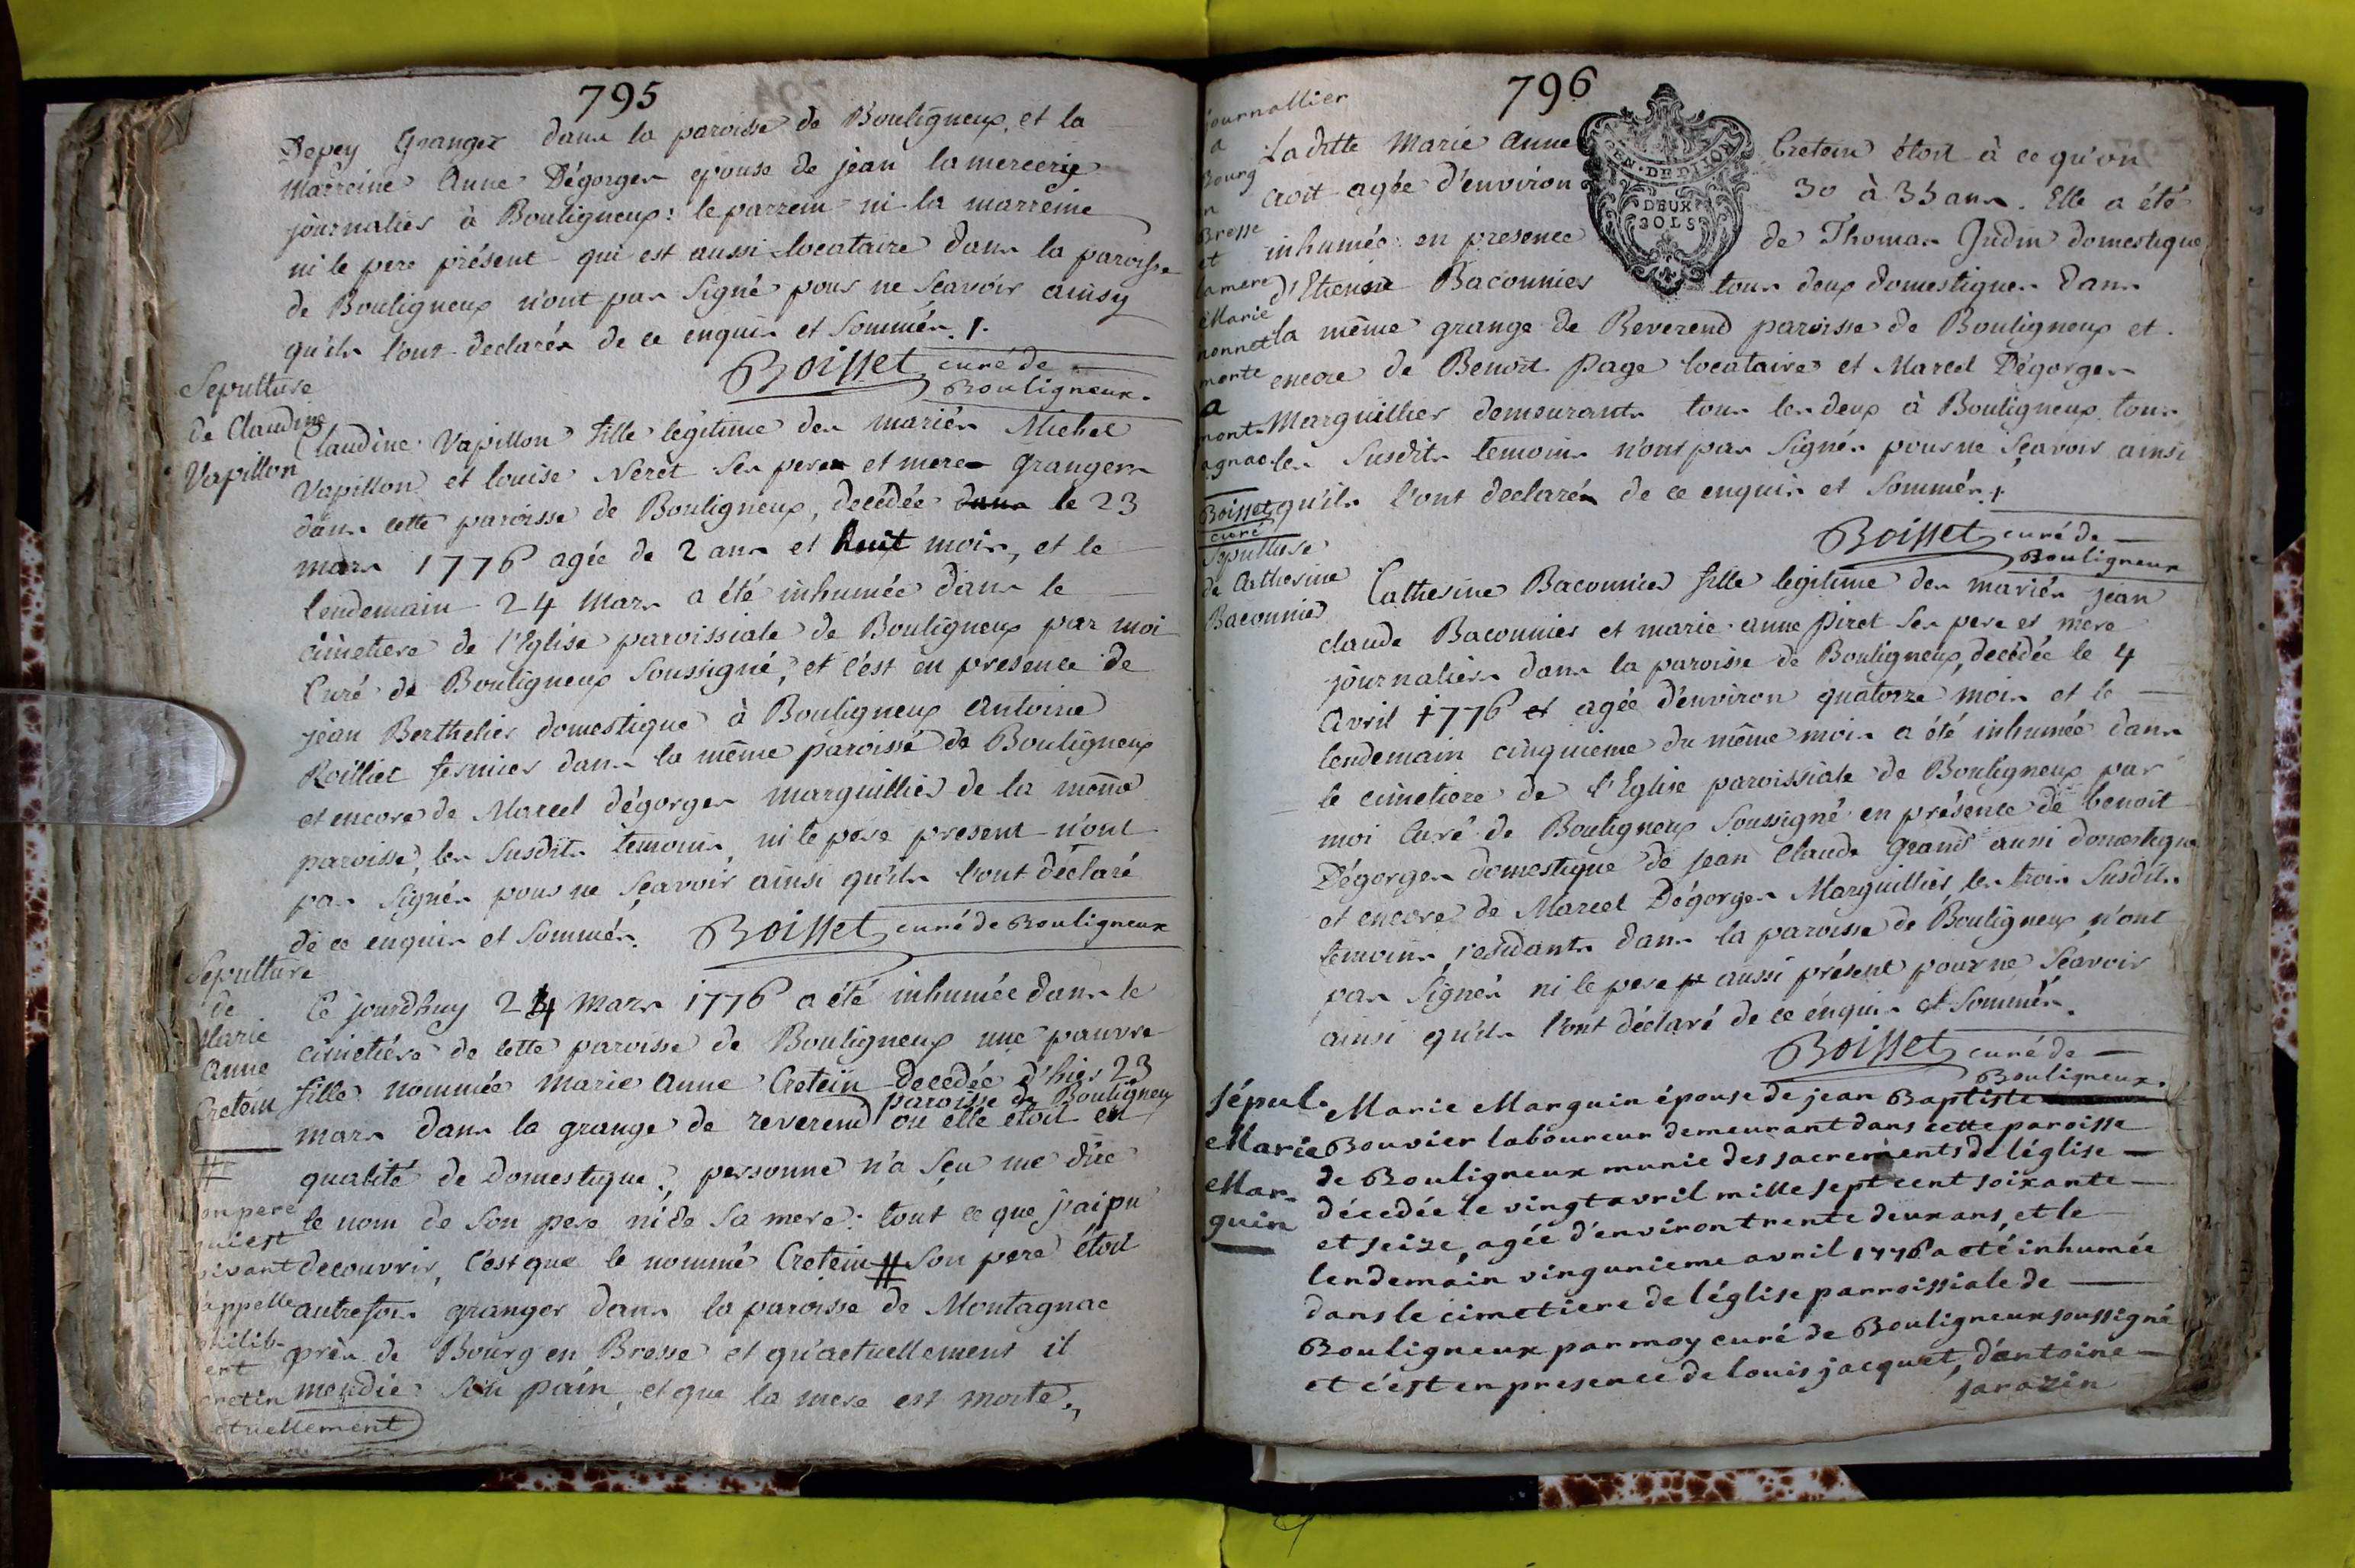 795
Depey Granger dans la paroisse de Bouligneux, et la
marreine Anne Dégorges epouse de jean la mercerie
journalier à Bouligneux: le parrein ni la marreine
ni le pere présent qui est aussi locataire dans la paroisse
de Bouligneux n'ont pas signé pour ne sçavoir ainsy
qu'ils l'ont declarés de ce enquis et sommés.
Boisset curé de
Bouligneux.
Sepulture
de Claudine
Vapillon
Claudine Vapillon fille légitime des mariés Michel
Vapillon et louise Neret ses peres et meres grangers
dans cette paroisse de Bouligneux, decédée dans le 23
mars 1776 agée de 2 ans et huit mois, et le
lendemain 24 mars a été inhumée dans le
cimetiere de l'Eglise paroissiale de Bouligneux par moi
Curé de Bouligneux soussigné, et c'est en presence de
jean Berthelier domestique à Bouligneux Antoine
Roilliet fermier dans la même paroisse de Bouligneux
et encore de Marcel dégorges marguillier de la même
paroisse, les susdits temoins, ni le pere present n'ont
pas signés pour ne sçavoir ainsi qu'ils l'ont déclaré
de ce enquis et sommés. Boisset curé de Bouligneux
Sepulture
de
Marie
Anne
Cretein
Ce jourdhuy 24 mars 1776 a été inhumée dans le
cimetiére de cette paroisse de Bouligneux une pauvre
fille nommée marie Anne Cretein decedée d'hier 23
paroisse de Bouligneux
mars dans la grange de reverend ou elle étoit en
qualité de domestique, personne n'a sçu me dire
le nom de son pere ni de sa mere: tout ce que j'ai pu
decouvrir, c'est que le nommé Cretein # son pere étoit
autrefois granger dans la paroisse de Montagnac
près de Bourg en Bresse et qu'actuellement il
mendie son pain, et que la mere est morte.
#
son pere
qui est
vivant
s'appelle
philib-
ert
cretin
actuellement
796
journallier
a
Bourg
en
Bresse
et
la mere
Marie
nonnet
morte
a
mont-
agnac
Boisset
curé
GEN. DE DIJON
DEUX
SOLS
Laditte Marie Anne Cretein étoit à ce qu'on
croit agée d'environ 30 à 35 ans. Elle a été
inhumée en presence de Thomas Judin domestique
d'Etienne Baconnier tous deux domestiques dans
la même grange de Reverend paroisse de Bouligneux et
encore de Benoit Page locataire et Marcel Dégorges
Marguillier demeurants tous les deux à Bouligneux, tous
les susdits temoins n'ont pas signés pour ne sçavoir ainsi
qu'ils l'ont declarés de ce enquis et sommés.
Boisset curé de
Bouligneux
Sepulture
de Catherine
Baconnier
Catherine Baconnier fille légitime des mariés jean
claude Baconnier et marie anne piret ses pere et mere
journaliers dans la paroisse de Bouligneux, decédée le 4
Avril 1776 et agée d'environ quatorze mois et le
lendemain cinquieme du même mois a été inhumée dans
le cimetiere de l'Eglise paroissiale de Bouligneux par
moi Curé de Bouligneux soussigné en présence de benoit
Dégorges domestique de jean Claude Grand aussi domestique
et encore de Marcel Dégorges Marguillier, les trois susdits
temoins, residants dans la paroisse de Bouligneux n'ont
pas signés ni le pere aussi présent pour ne sçavoir
ainsi qu'ils l'ont déclaré de ce énquis et sommés.
Boisset curé de
Bouligneux.
Sépul.
Marie
Mar-
guin
Marie Marguin épouse de jean Baptiste
Bouvier laboureur demeurant dans cette paroisse
de Bouligneux munie des sacrements de léglise
décedée le vingt avril mille sept cent soixante
et seize, agée d'environ trente deux ans, et le
lendemain vingunieme avril 1776 a eté inhumée
dans le cimetiere de léglise parroissiale de
Bouligneux par moy curé de Bouligneux soussigné
et c'est en presence de louis jacquet, d'antoine
sarazin